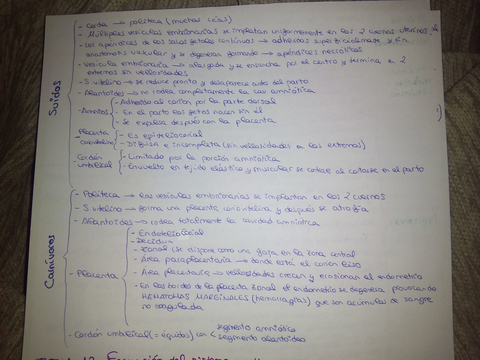 - Cerda → politeca (muchas crías)
- Múltiples vesículas embrionarias se implantan uniformemente en los 2 cuernos uterinos
- Los apéndices de los sacos fetales contiguos → adheridos superficialmente y sin anastomosis vascular y se degeneran formando → apéndices necróticos
- Vesícula embrionaria → alargada y se ensancha por el centro y termina en 2 extremos sin vellosidades
- S. vitelino → se reduce pronto y desaparece antes del parto
- Alantoides → no rodea completamente la cav amniótica
Suidos
- Amnios
- Adherido al corion por la parte dorsal
- En el parto los fetos nacen sin él
- Se expulsa después con la placenta
- Placenta
- Es epiteliocorial
- Difusa e incompleta (sin vellosidades en los extremos)
- Cordón umbilical
- Limitado por la porción amniótica
- Envuelto en tejido elástico y muscular se contrae al cortarse en el parto
- Politeca → las vesículas embrionarias se implantan en los 2 cuernos
- S. vitelino → forma una placenta coriovitelina y después se atrofia
- Alantoides → rodea totalmente la cavidad amniótica
Carnívoros
- Placenta
- Endoteliocorial
- Decidua
- Zonal (se dispone como una faja en la zona central
- Área paraplacentaria → donde está el corion liso
- Área placentaria → vellosidades crecen y erosionan al endometrio
- En los bordes de la placenta zonal el endometrio se degenera provocando
HEMATOMAS MARGINALES (hemorragias) que son acúmulos de sangre
no coagulada
- Cordón umbilical (= équidos) con
segmento amniótico
segmento alantoideo